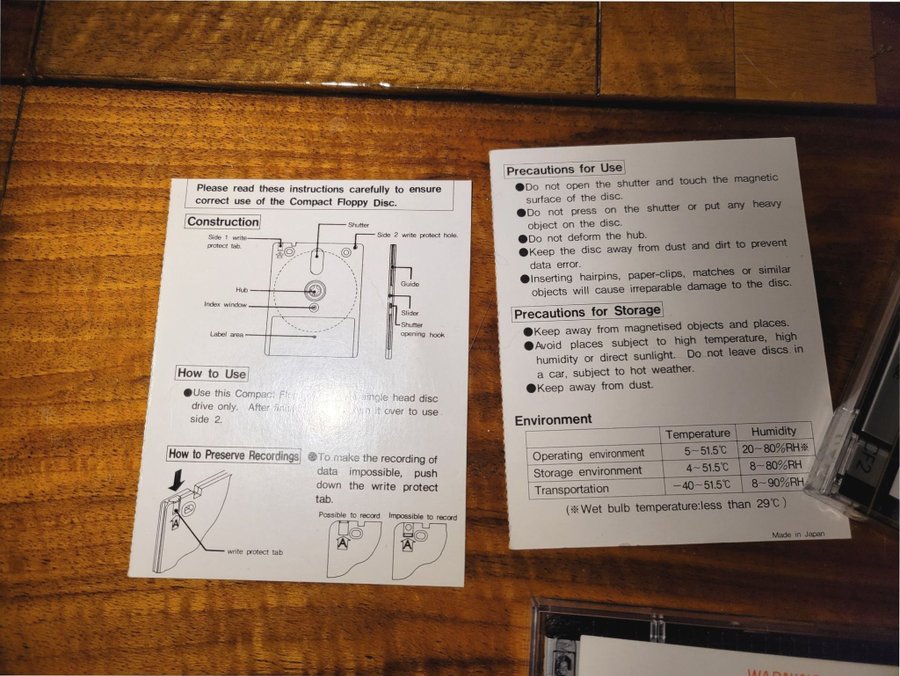 Please read these instructions carefully to ensure
correct use of the Compact Floppy Disc.
Construction
Shutter
Side 1 write
protect tab.
Side 2 write protect hole.
Hub
Guide
Index window
Slider
Shutter
opening hook
Label area
How to Use
●Use this Compact single head disc
drive only. After it over to use
side 2.
How to Preserve Recordings
●To make the recording of
data impossible, push
down the write protect
tab.
Possible to record
Impossible to record
A
A
A
write protect tab
Precautions for Use
●Do not open the shutter and touch the magnetic
surface of the disc.
●Do not press on the shutter or put any heavy
object on the disc.
●Do not deform the hub.
●Keep the disc away from dust and dirt to prevent
data error.
●Inserting hairpins, paper-clips, matches or similar
objects will cause irreparable damage to the disc.
Precautions for Storage
●Keep away from magnetised objects and places.
●Avoid places subject to high temperature, high
humidity or direct sunlight. Do not leave discs in
a car, subject to hot weather.
●Keep away from dust.
Environment
Temperature Humidity
Operating environment 5~51.5℃ 20~80%RH※
Storage environment 4~51.5℃ 8~80%RH
Transportation −40~51.5℃ 8~90%RH
(※Wet bulb temperature:less than 29℃)
Made in Japan
CF2